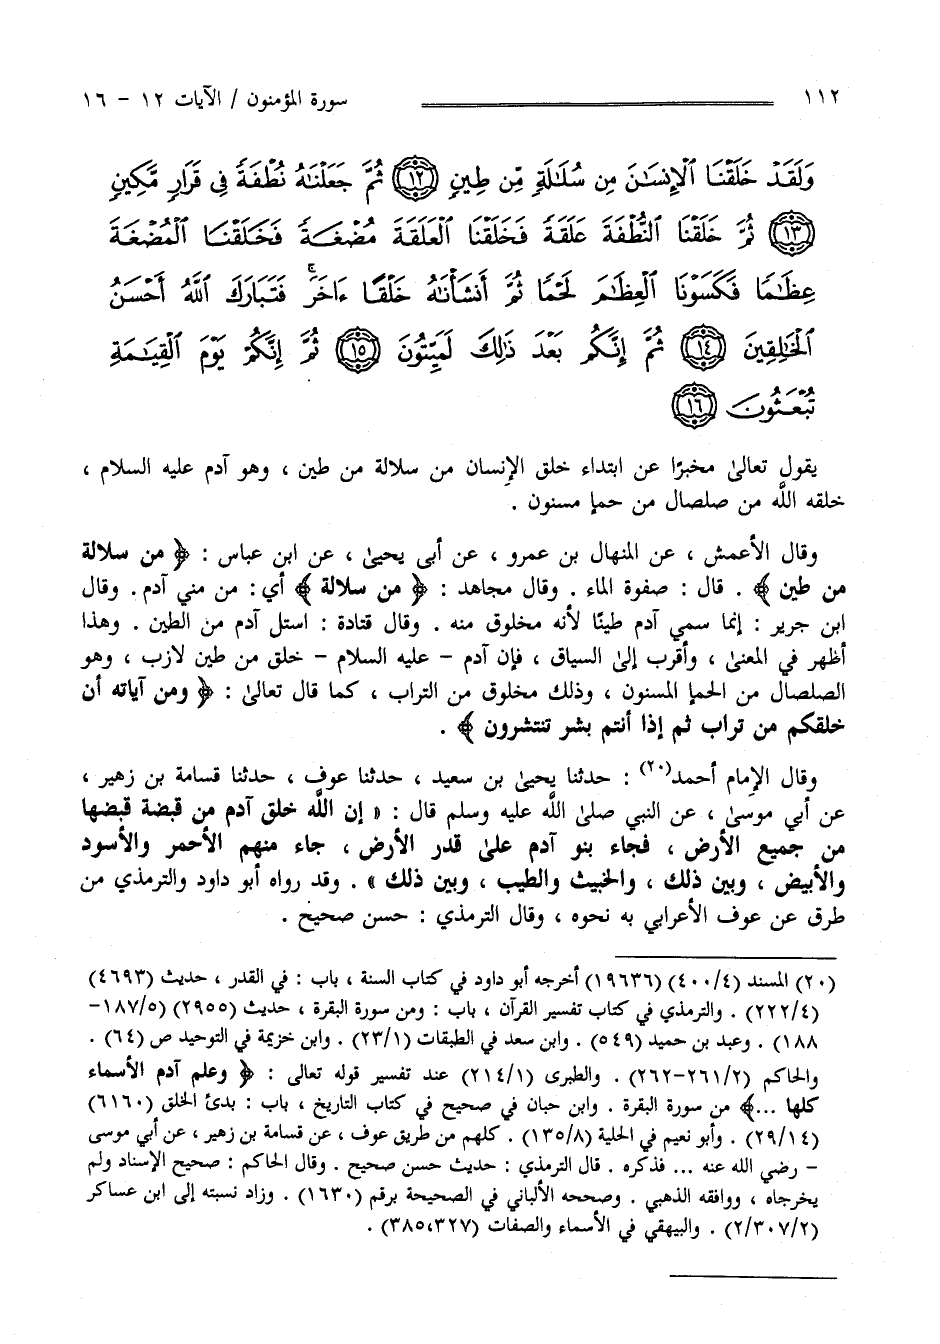 ١١٢ سورة المؤمنون / الآيات ١٢ - ١٦
وَلَقَدْ خَلَقْنَا ٱلْإِنسَـٰنَ مِن سُلَـٰلَةٍ مِّن طِينٍ ١٢ ثُمَّ جَعَلْنَـٰهُ نُطْفَةً فِى قَرَارٍ مَّكِينٍ
١٣ ثُمَّ خَلَقْنَا ٱلنُّطْفَةَ عَلَقَةً فَخَلَقْنَا ٱلْعَلَقَةَ مُضْغَةً فَخَلَقْنَا ٱلْمُضْغَةَ
عِظَـٰمًا فَكَسَوْنَا ٱلْعِظَـٰمَ لَحْمًا ثُمَّ أَنشَأْنَـٰهُ خَلْقًا ءَاخَرَ ۚ فَتَبَارَكَ ٱللَّهُ أَحْسَنُ
ٱلْخَـٰلِقِينَ ١٤ ثُمَّ إِنَّكُم بَعْدَ ذَٰلِكَ لَمَيِّتُونَ ١٥ ثُمَّ إِنَّكُمْ يَوْمَ ٱلْقِيَـٰمَةِ
تُبْعَثُونَ ١٦
يقول تعالىٰ مخبرًا عن ابتداء خلق الإنسان من سلالة من طين ، وهو آدم عليه السلام ،
خلقه اللَّه من صلصال من حمإ مسنون .
وقال الأعمش ، عن المنهال بن عمرو ، عن أبي يحيىٰ ، عن ابن عباس : ﴿ من سلالة
من طين ﴾ . قال : صفوة الماء . وقال مجاهد : ﴿ من سلالة ﴾ أي: من مني آدم . وقال
ابن جرير : إنما سمي آدم طينًا لأنه مخلوق منه . وقال قتادة : استل آدم من الطين . وهذا
أظهر في المعنىٰ ، وأقرب إلىٰ السياق ، فإن آدم - عليه السلام - خلق من طين لازب ، وهو
الصلصال من الحمإ المسنون ، وذلك مخلوق من التراب ، كما قال تعالىٰ : ﴿ ومن آياته أن
خلقكم من تراب ثم إذا أنتم بشر تنتشرون ﴾ .
وقال الإمام أحمد(٢٠) : حدثنا يحيىٰ بن سعيد ، حدثنا عوف ، حدثنا قسامة بن زهير ،
عن أبي موسىٰ ، عن النبي صلىٰ اللَّه عليه وسلم قال : « إن اللَّه خلق آدم من قبضة قبضها
من جميع الأرض ، فجاء بنو آدم علىٰ قدر الأرض ، جاء منهم الأحمر والأسود
والأبيض ، وبين ذلك ، والخبيث والطيب ، وبين ذلك » . وقد رواه أبو داود والترمذي من
طرق عن عوف الأعرابي به نحوه ، وقال الترمذي : حسن صحيح .
(٢٠) المسند (٤٠٠/٤) (١٩٦٣٦) أخرجه أبو داود في كتاب السنة ، باب : في القدر ، حديث (٤٦٩٣)
(٢٢٢/٤) . والترمذي في كتاب تفسير القرآن ، باب : ومن سورة البقرة ، حديث (٢٩٥٥) (١٨٧/٥-
١٨٨) . وعبد بن حميد (٥٤٩) . وابن سعد في الطبقات (٢٣/١) . وابن خزيمة في التوحيد ص (٦٤) .
والحاكم (٢٦١/٢-٢٦٢) . والطبرى (٢١٤/١) عند تفسير قوله تعالى : ﴿ وعلم آدم الأسماء
كلها ...﴾ من سورة البقرة . وابن حبان في صحيح في كتاب التاريخ ، باب : بدئ الخلق (٦١٦٠)
(٢٩/١٤) . وأبو نعيم في الحلية (١٣٥/٨) . كلهم من طريق عوف ، عن قسامة بن زهير ، عن أبي موسى
- رضي الله عنه ... فذكره . قال الترمذي : حديث حسن صحيح . وقال الحاكم : صحيح الإسناد ولم
يخرجاه ، ووافقه الذهبي . وصححه الألباني في الصحيحة برقم (١٦٣٠) . وزاد نسبته إلى ابن عساكر
(٢/٣٠٧/٢) . والبيهقي في الأسماء والصفات (٣٨٥،٣٢٧) .